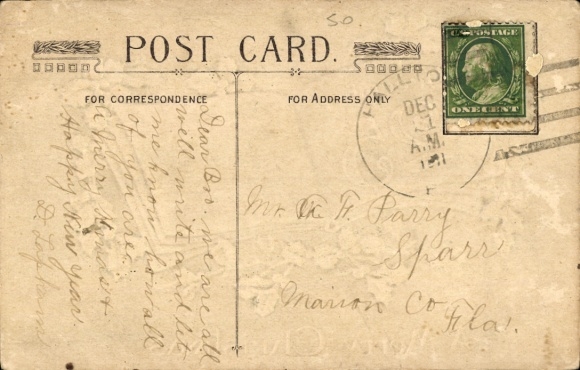 50.
POST CARD.
FOR CORRESPONDENCE
FOR ADDRESS ONLY
U.S. POSTAGE
ONE CENT
DEC
21
A.M.
1911
Dear Bro. we are all
well write and let
me know how all
of you are.
A Merry Xmas &
Happy New Year
Mr. F. Parry
Sparr
Marion Co
Fla.